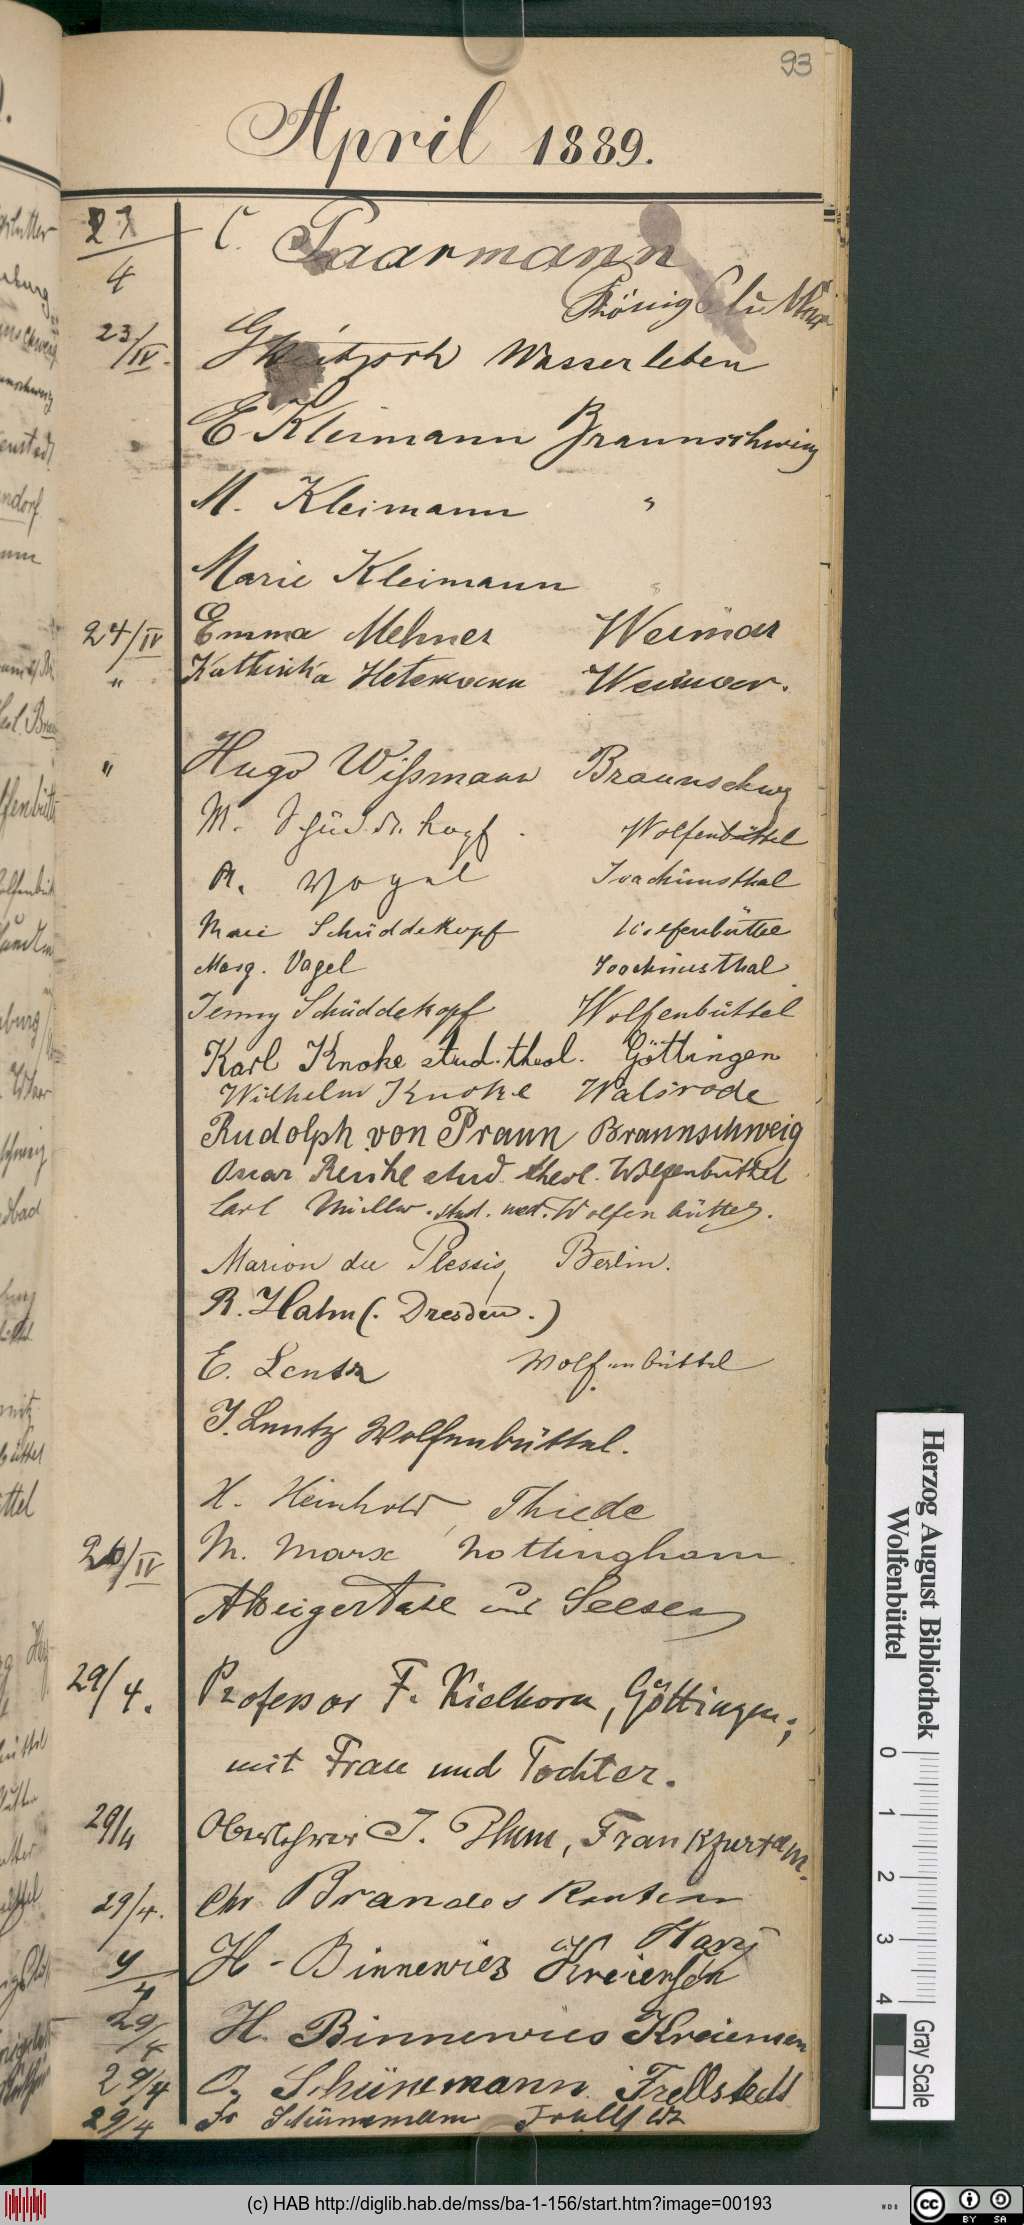 93
April 1889.
27/4 C. Paarmann
Königslutter
23/IV. Wasserleben
E Kleimann Braunschweig
M. Kleimann "
Marie Kleimann "
24/IV Emma Mehner Weimar
" Kathinka Weimar.
" Hugo Wißmann Braunschwg
M. Schüddekopf. Wolfenbüttel
A. Vogel Joachimsthal
Marie Schüddekopf Wolfenbüttel
Marg. Vogel Joachimsthal
Jenny Schüddekopf Wolfenbüttel
Karl Knoke stud. theol. Göttingen
Wilhelm Knoke Walsrode
Rudolph von Praun Braunschweig
Oscar stud. theol. Wolfenbüttel
Carl Müller. stud. med. Wolfenbüttel.
Marion du Plessis, Berlin.
R. Hahn (. Dresden .)
E. Lentz Wolfenbüttel
J. Lentz Wolfenbüttel.
H. Heinhold, Thiede
26/IV M. Marx Nottingham.
Seesen
29/4. Professor F. Kielhorn, Göttingen;
mit Frau und Tochter.
29/4 Oberlehrer J. Blum, Frankfurt a M.
29/4. Chr Brandes
Harz
H - Binnewies Kreiensen
29/4 H. Binnewies Kreiensen
29/4 O. Schünemann Frellstedt
29/4 Fr Schünemann
Herzog August Bibliothek
Wolfenbüttel
0 1 2 3 4
Gray Scale
(c) HAB http://diglib.hab.de/mss/ba-1-156/start.htm?image=00193
WDB
cc BY SA